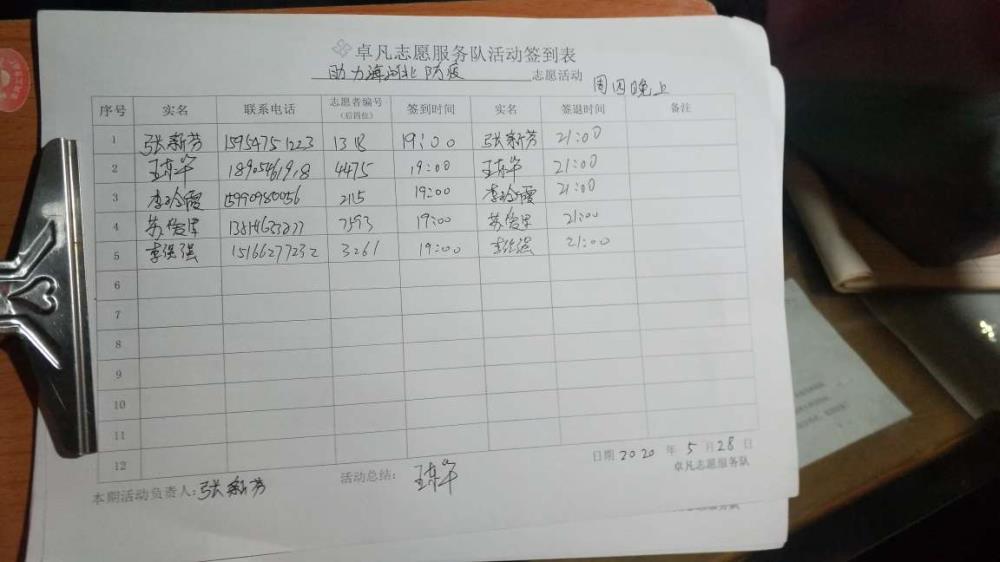 卓凡志愿服务队活动签到表
助力滨河北防疫 志愿活动 周四晚上
序号 实名 联系电话 志愿者编号(后四位) 签到时间 实名 签退时间 备注
1 张新芳 15954751223 1318 19:00 张新芳 21:00
2 18905461918 4475 19:00 21:00
3 李玲霞 15990980056 2115 19:00 李玲霞 21:00
4 7593 19:00 21:00
5 15166277232 3261 19:00 21:00
6
7
8
9
10
11
12
日期 2020 年 5 月 28 日
卓凡志愿服务队
本期活动负责人:张新芳 活动总结: